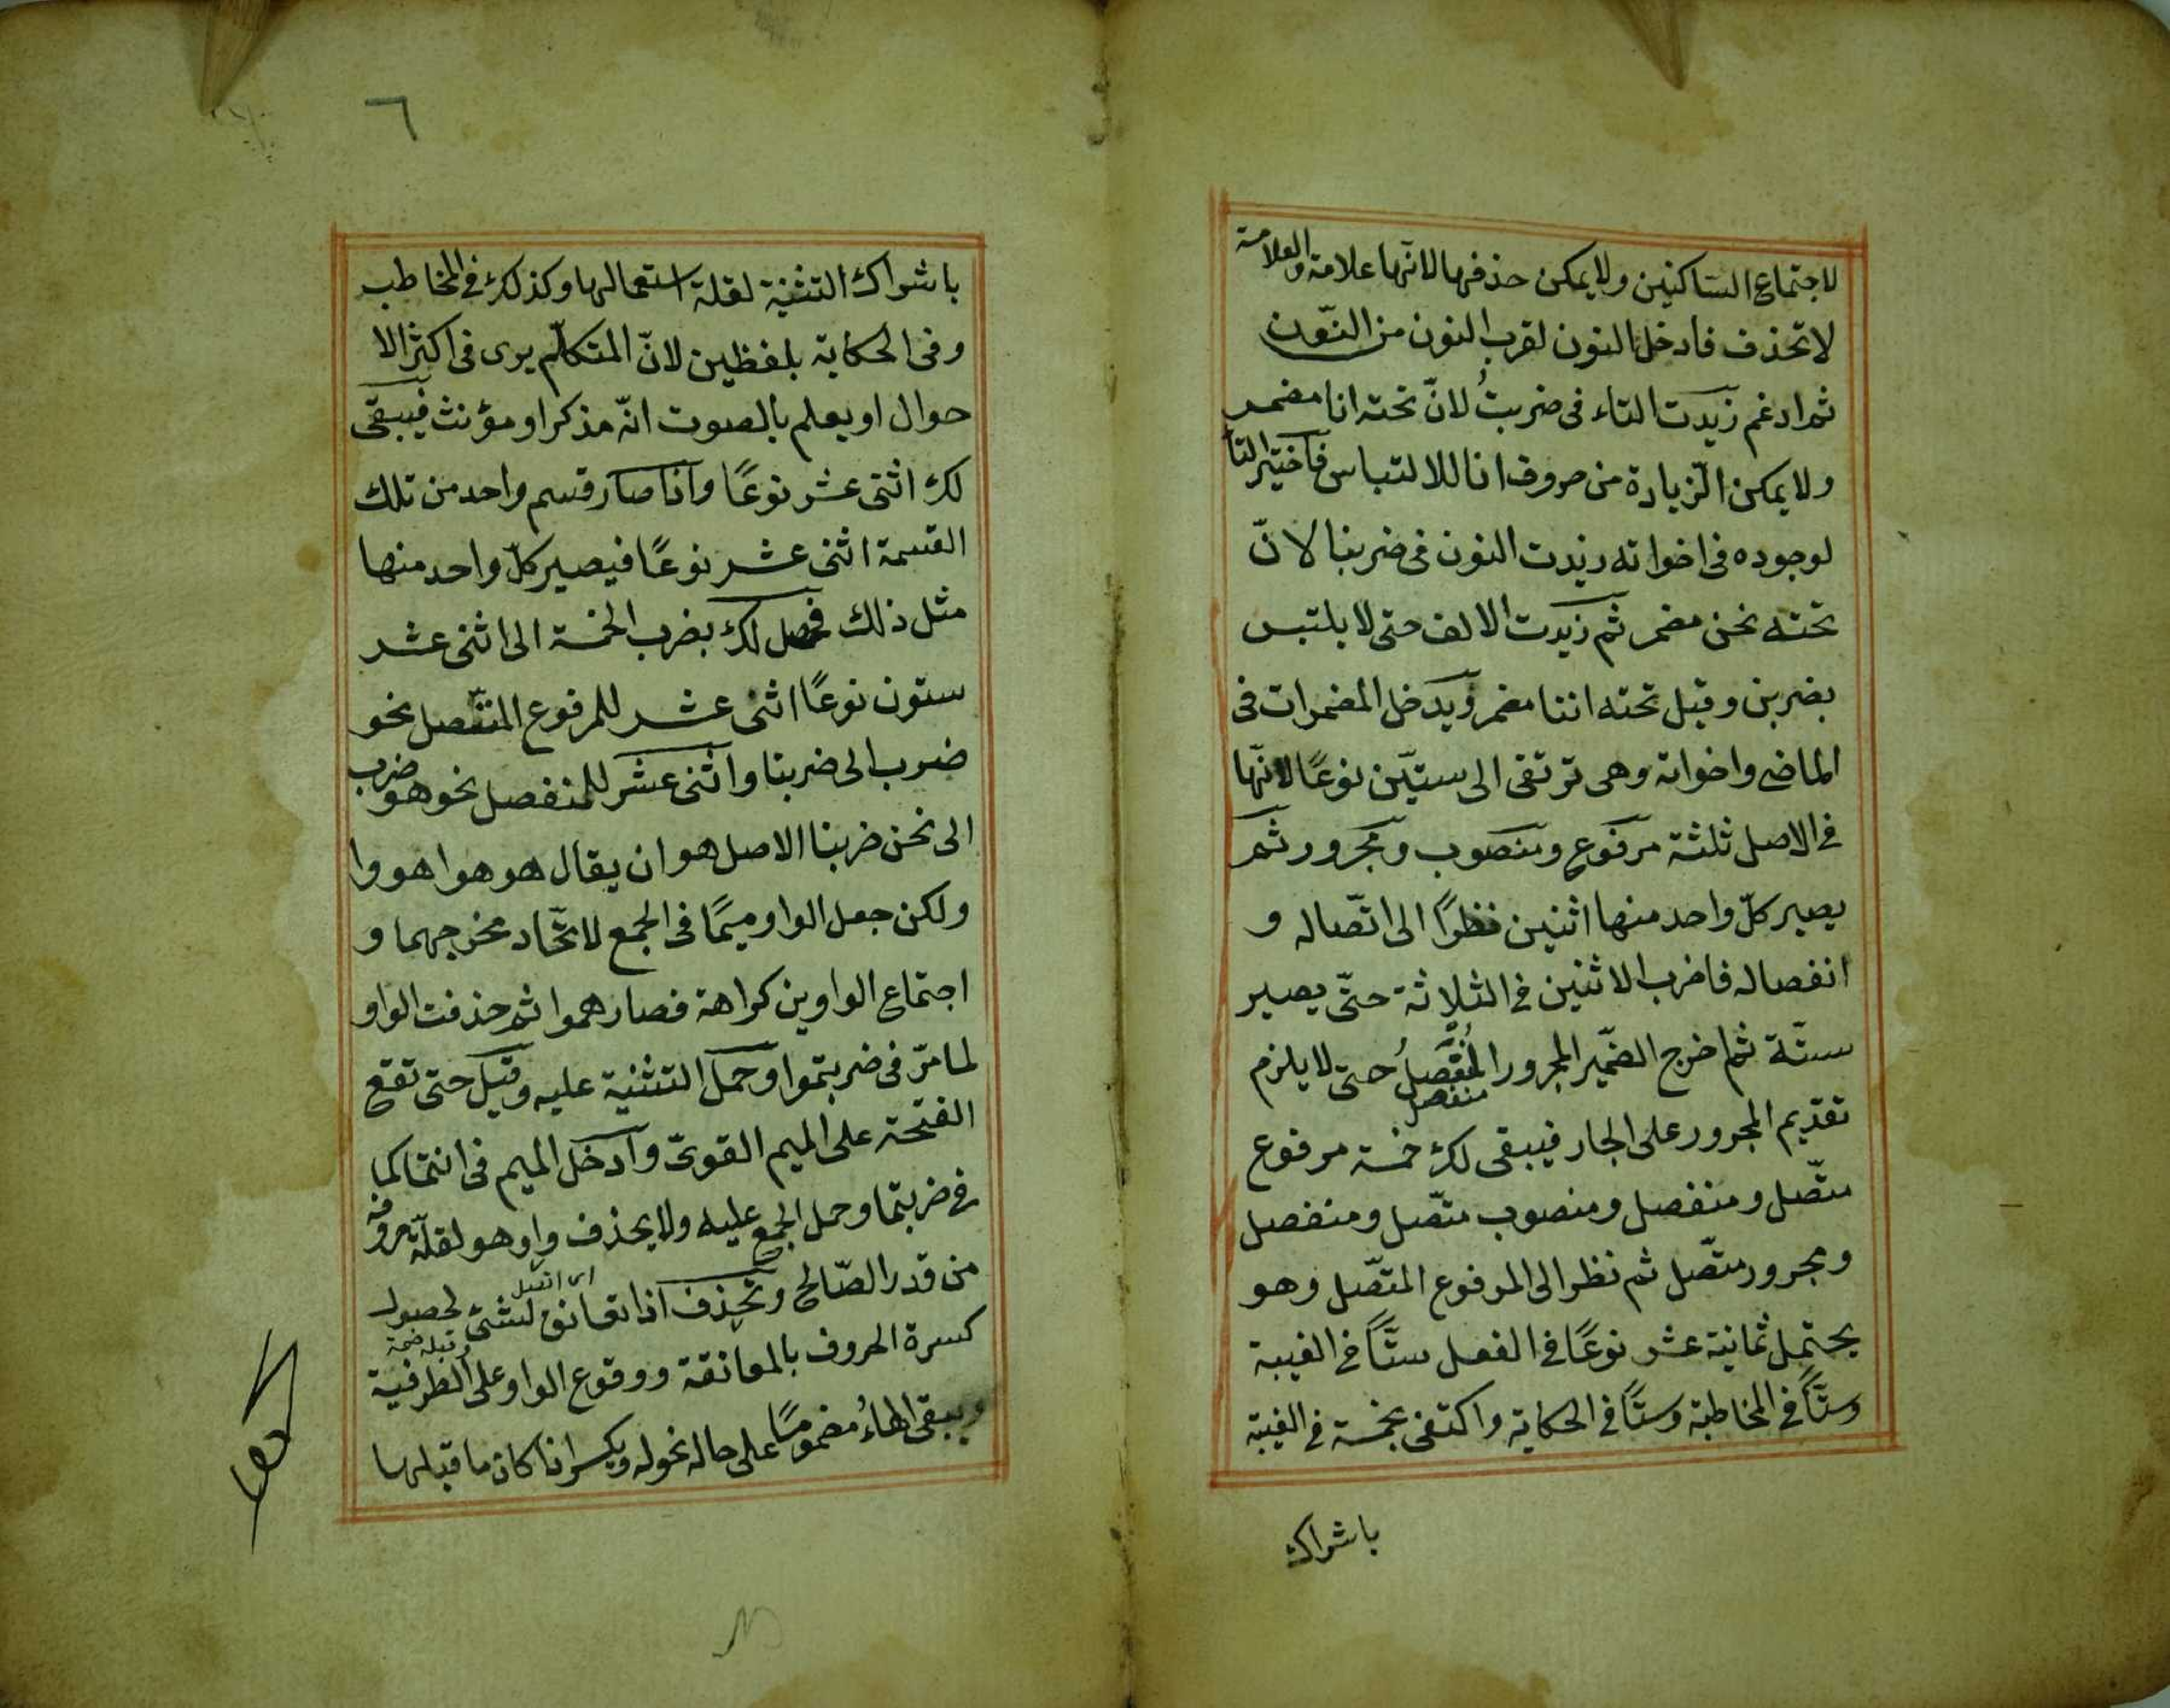 لاجتماع الساكنين ولا يمكن حذفها لانّها علامة والعلامة
لا تحذف فادخل النون لقرب النون من النّون
ثم ادغم زيدت التاء فى ضربتُ لانّ تحته انا مضمر
ولا يمكن الزيادة من حروف انا للالتباس فاختير التا
لوجوده فى اخواته زيدت النون فى ضربنا لانّ
تحته نحن مضمر ثم زيدت الالف حتى لا يلتبس
بضربن وقيل تحته اننا مضمر ويدخل المضمرات فى
الماضى واخواته وهى ترتقى الى ستيّن نوعًا لانّها
فى الاصل ثلثة مرفوع ومنصوب ومجرور ثم
يصير كلّ واحد منها اثنين نظرًا الى اتّصاله و
انفصاله فاضرب الاثنين فى الثلاثة حتّى يصير
ستّة ثم اخرج الضمّير المجرور المنفصلُ حتى لا يلزم
منفصل
تقديم المجرور على الجار فيبقى لك خمسة مرفوع
متّصل ومنفصل ومنصوب متّصل ومنفصل
ومجرور متّصل ثم نظر الى المرفوع المتّصل وهو
يحتمل ثمانية عشر نوعًا فى الفعل ستًّا فى الغيبة
وستًّا فى المخاطبة وستًّا فى الحكاية واكتفى بخمسة فى الغيبة
باشراك
٦
باشراك التثنية لقلة استعمالها وكذلك فى المخاطب
وفى الحكاية بلفظين لانّ المتكلّم يرى فى اكثر الا
حوال او يعلم بالصوت انّه مذكر او مؤنث فيبقى
لك اثنى عشر نوعًا واذا صار قسم واحد من تلك
القسمة اثنى عشر نوعًا فيصير كلّ واحد منها
مثل ذلك فحصل لك بضرب الخمسة الى اثنى عشر
ستون نوعًا اثنى عشر للمرفوع المتّصل نحو
ضرب الى ضربنا واثنى عشر للمنفصل نحو هو ضرب
الى نحن ضربنا الاصل هو ان يقال هو هوا هووا
ولكن جعل الواو ميمًا فى الجمع لاتّحاد مخرجهما و
اجتماع الواوين كراهة فصار هموا ثم حذفت الواو
لما مرّ فى ضربتموا وحمل التثنية عليه وقيل حتى تقع
الفتحة على الميم القوىّ وادخل الميم فى انتما كما
فى ضربتما وحمل الجمع عليه ولا يحذف واو هو لقلّة حروفه
من قدر الصّالح وتحذف اذا تعانق لشئ لحصول
اى اتصل
كسرة الحروف بالمعانقة ووقوع الواو على الطرفية
وقبله ضمة
ويبقى الهاءُ مضمومًا على حاله نحو له ويكسر اذا كان ما قبلها